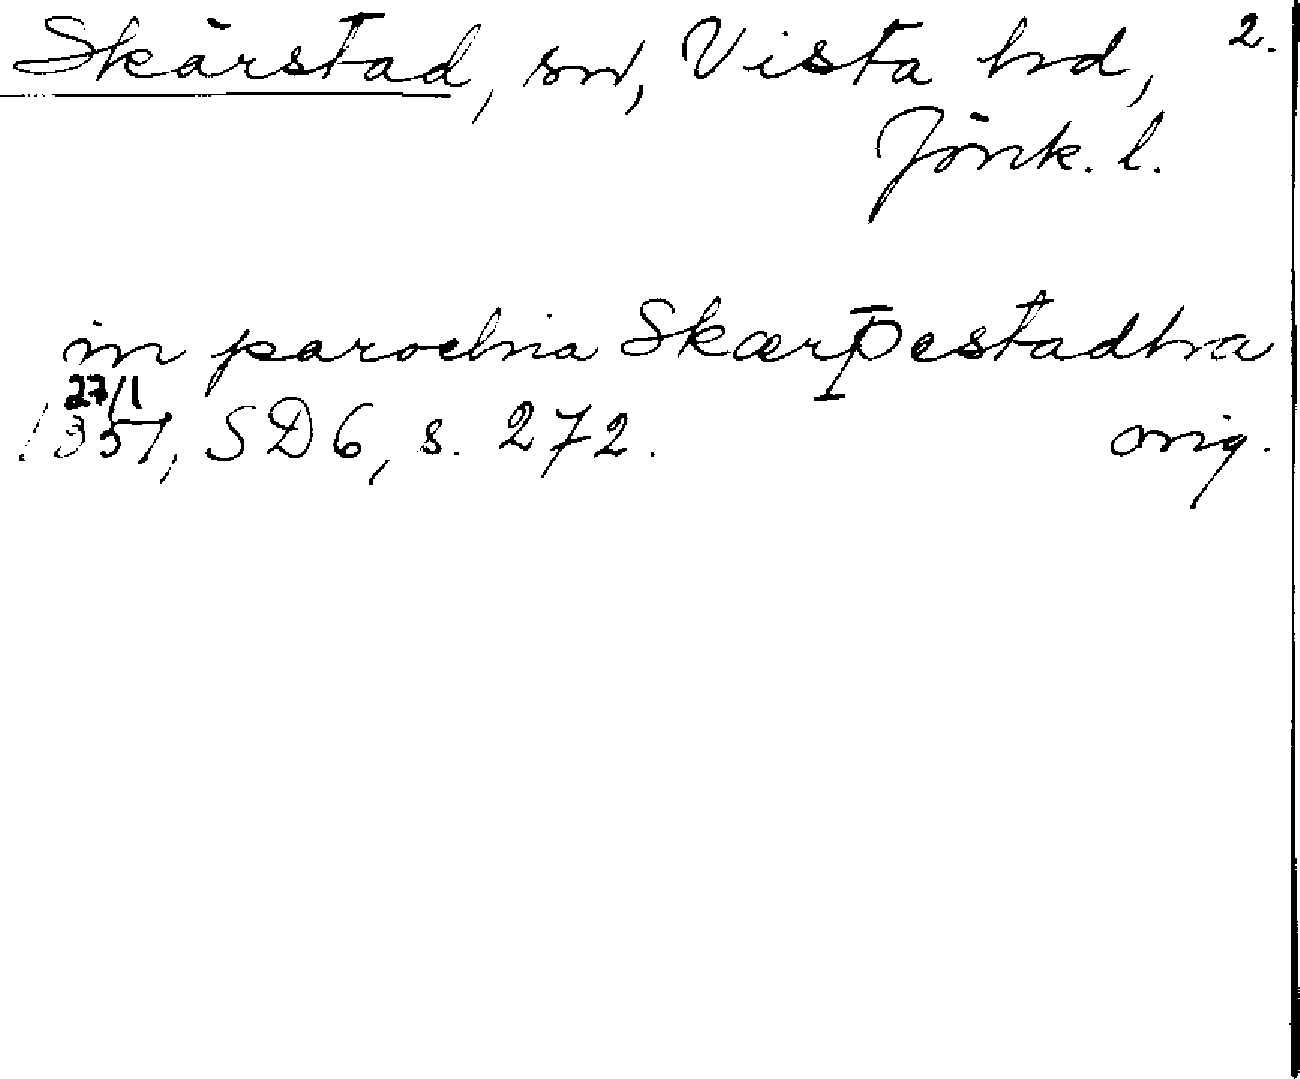 Skärstad, sn, Vista hd, 2.
Jönk. l.
in parochia Skærþestadha
27/1
1351, SD 6, s. 272. orig.